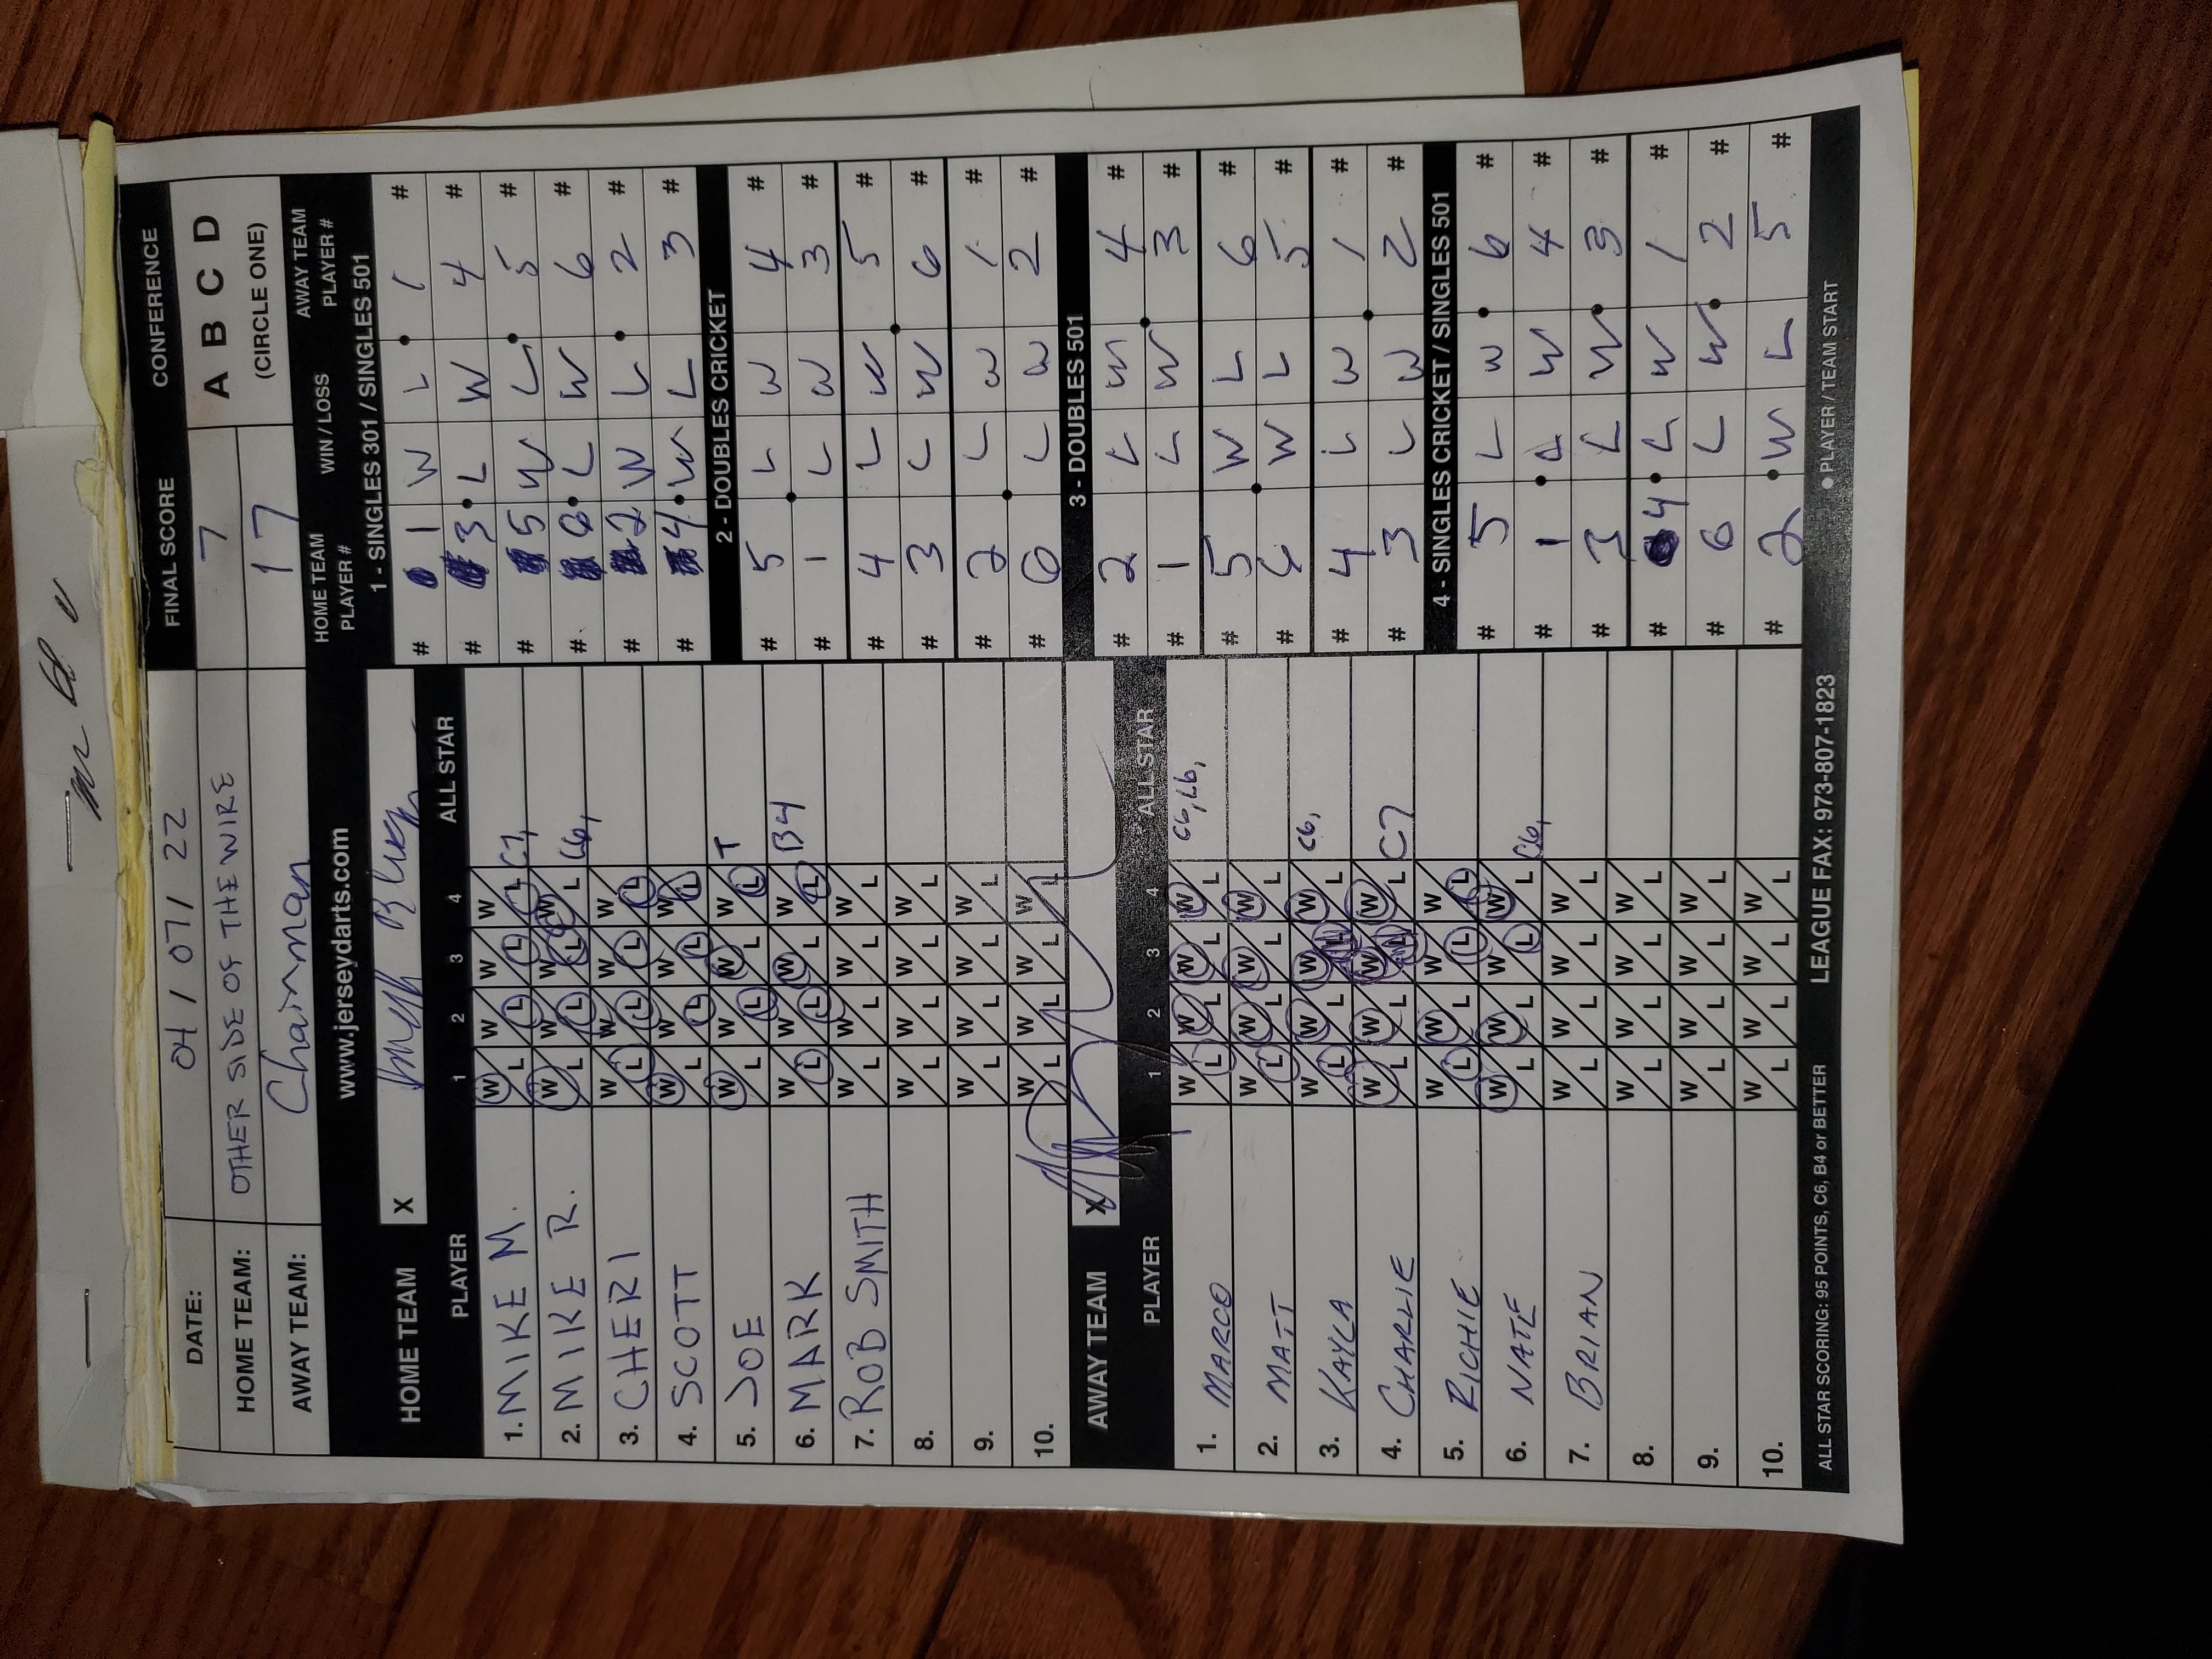 DATE: 04 / 07 / 22 FINAL SCORE CONFERENCE
HOME TEAM: OTHER SIDE OF THE WIRE 7 A B C D
AWAY TEAM: Chairman 17 (CIRCLE ONE)
www.jerseydarts.com
HOME TEAM X
PLAYER 1 2 3 4 ALL STAR
1. MIKE M. W L W L W L W L C7,
2. MIKE R. W L W L W L W L C6,
3. CHERI W L W L W L W L
4. SCOTT W L W L W L W L
5. JOE W L W L W L W L T
6. MARK W L W L W L W L B4
7. ROB SMITH W L W L W L W L
8. W L W L W L W L
9. W L W L W L W L
10. W L W L W L W L
AWAY TEAM X
PLAYER 1 2 3 4 ALL STAR
1. MARCO W L W L W L W L C6, L6,
2. MATT W L W L W L W L
3. KAYLA W L W L W L W L C6,
4. CHARLIE W L W L W L W L C7
5. RICHIE W L W L W L W L
6. NATE W L W L W L W L C6,
7. BRIAN W L W L W L W L
8. W L W L W L W L
9. W L W L W L W L
10. W L W L W L W L
HOME TEAM PLAYER # WIN / LOSS AWAY TEAM PLAYER #
1 - SINGLES 301 / SINGLES 501
# 1 W L 1 #
# 3 L W 4 #
# 5 W L 5 #
# 6 L W 6 #
# 2 W L 2 #
# 4 W L 3 #
2 - DOUBLES CRICKET
# 5 L W 4 #
# 1 L W 3 #
# 4 L W 5 #
# 3 L W 6 #
# 2 L W 1 #
# 6 L W 2 #
3 - DOUBLES 501
# 2 L W 4 #
# 1 L W 3 #
# 5 W L 6 #
# 6 W L 5 #
# 4 L W 1 #
# 3 L W 2 #
4 - SINGLES CRICKET / SINGLES 501
# 5 L W 6 #
# 1 L W 4 #
# 3 L W 3 #
# 4 L W 1 #
# 6 L W 2 #
# 2 W L 5 #
ALL STAR SCORING: 95 POINTS, C6, B4 or BETTER LEAGUE FAX: 973-807-1823 ● PLAYER / TEAM START